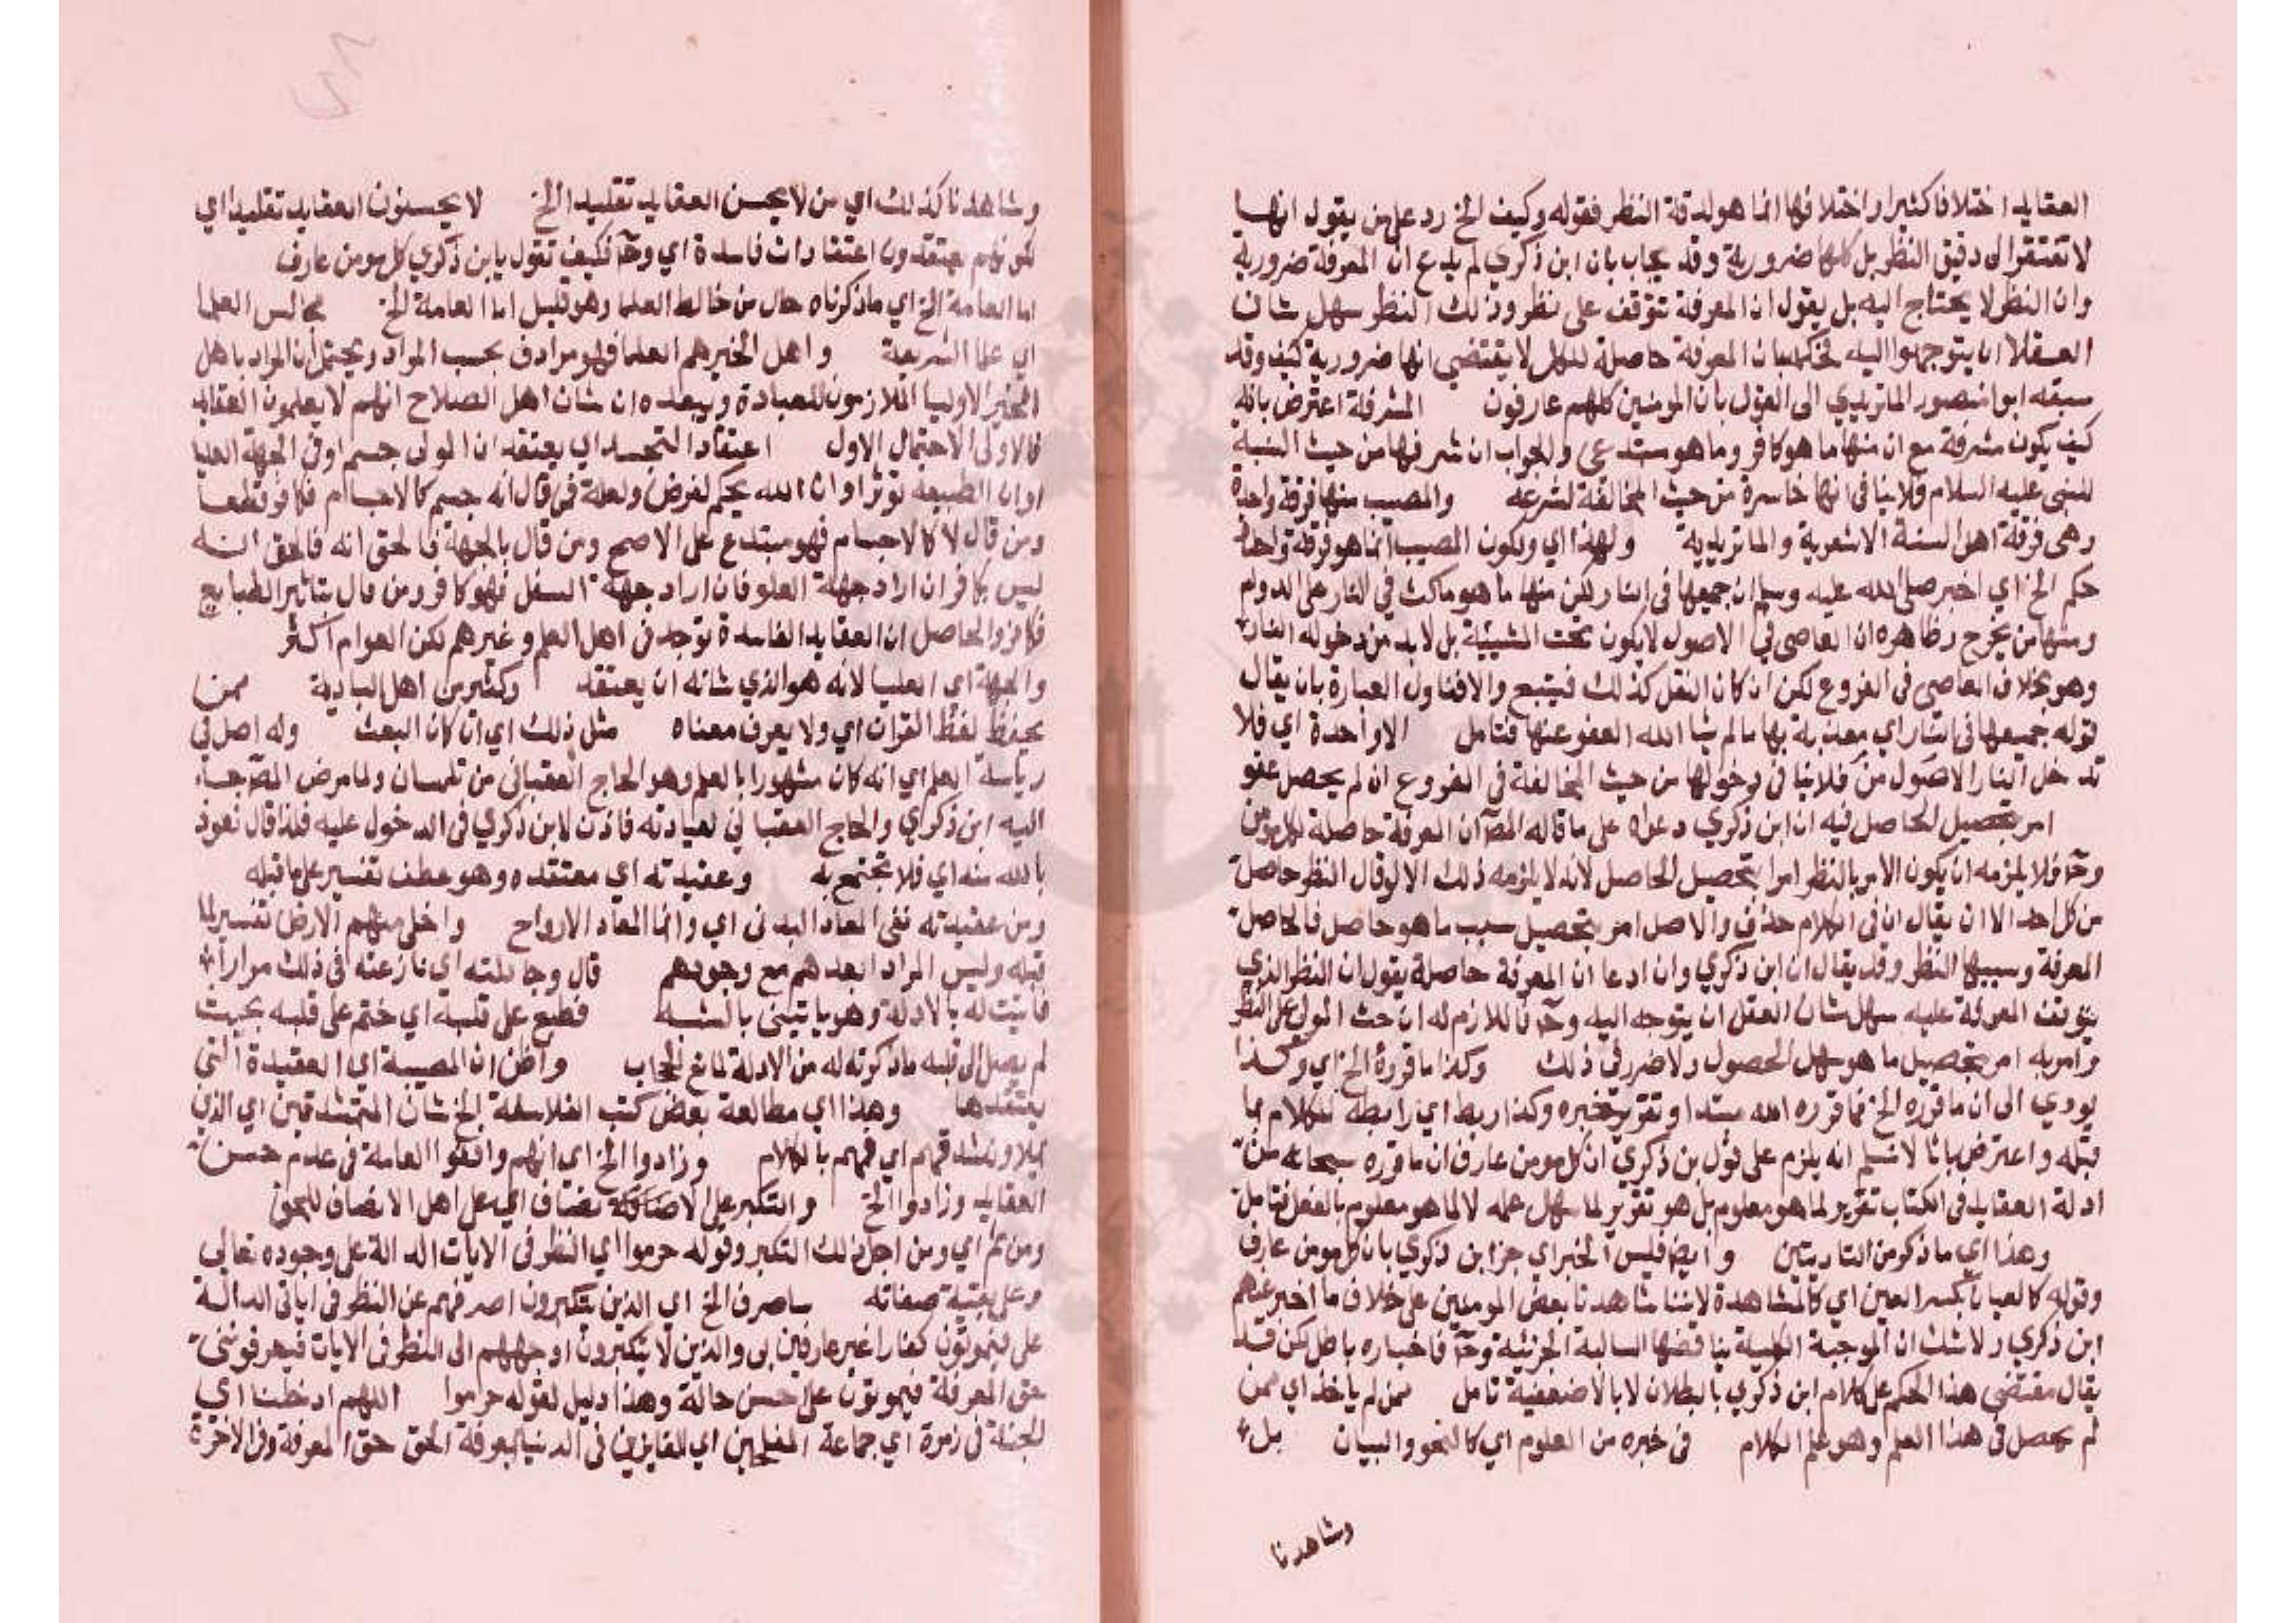 العقايد اختلافا كثيرا واختلافها انما هو لدقة النظر فقوله وكيف الخ رد على من يقول انها
لا تفتقر الى دقيق النظر بل كلها ضرورية وقد يجاب بان ابن ذكري لم يدع ان المعرفة ضرورية
وان النظر لا يحتاج اليه بل يقول ان المعرفة تتوقف على نظر وذلك النظر سهل شان
العقلا ان يتوجهوا اليه فحكمه بان المعرفة حاصلة للكل لا يقتضي انها ضرورية كيف وقد
سبقه ابو منصور الماتريدي الى القول بان المومنين كلهم عارفون المشرفة اعترض بانه
كيف يكون مشرفة مع ان منها ما هو كافر وما هو مبتدعي والجواب ان شرفها من حيث النسبة
للنبي عليه السلام فلا ينافي انها خاسرة من حيث المخالفة لشرعه والمصيب منها فرقة واحدة
وهي فرقة اهل السنة الاشعرية والماتريدية ولهذا اي ولكون المصيب انما هو فرقة واحدة
حكم الخ اي اخبر صلى الله عليه وسلم ان جميعها في النار لكن منها ما هو ماكث في النار على الدوام
ومنها من يخرج وظاهره ان العاصي في الاصول لا يكون تحت المشيئة بل لابد من دخوله النار
وهو بخلاف العاصي في الفروع لكن ان كان النقل كذلك فيتبع والا فتاول العبارة بان يقال
قوله جميعها في النار اي معذبة بها ما لم يشا الله العفو عنها فتامل الا واحدة اي فلا
تدخل النار الاصول من فلا ينافي دخولها من حيث المخالفة في الفروع ان لم يحصل عفو
امر بتحصيل الحاصل فيه ان ابن ذكري دعواه على ما قاله المص ان المعرفة حاصلة لكل مومن
وح فلا يلزمه ان يكون الامر بالنظر امرا بتحصيل الحاصل لانه لا يلزمه ذلك الا لو قال النظر حاصل
من كل احد الا ان يقال ان في الكلام حذف والاصل امر بتحصيل سبب ما هو حاصل فالحاصل
المعرفة وسببها النظر وقد يقال ان ابن ذكري وان ادعا ان المعرفة حاصلة يقول ان النظر الذي
يتوقف المعرفة عليه سهل شان العقل ان يتوجه اليه وح فاللازم له ان حث المولى على النظر
وامر به امر بتحصيل ما هو سهل الحصول ولا ضرر في ذلك وكذا ما قرره الخ اي وكذا
يودي الى ان ما قرره الخ فما قرره الله مبتدا وتقرير خبره وكذا ربط اي رابطة للكلام بما
قبله واعترض بانا لا نسلم انه يلزم على قول بن ذكري ان كل مومن عارف ان ما قرره سبحانه من
ادلة العقايد في الكتاب تقرير لما هو معلوم بل هو تقرير لما سهل علمه لا لما هو معلوم بالفعل فتامل
وهذا اي ما ذكر من التاديتين وايضا فليس الخبر اي خبر ابن ذكري بان كل مومن عارف
وقوله كالعيان بكسر العين اي كالمشاهدة لاننا شاهدنا بعض المومنين على خلاف ما اخبر عنهم
ابن ذكري ولا شك ان الموجبة الكلية يناقضها السالبة الجزئية وح فاخباره باطل لكن قد
يقال مقتضى هذا الحكم على كلام ابن ذكري بالبطلان لا بالاضعفية تامل فمن لم ياخذ اي فمن
لم يحصل في هذا العلم وهو علم الكلام في خبره من العلوم اي كالنحو والبيان بل
وشاهدنا
وشاهدنا كذلك اي من لا يحسن العقايد تقليدا الخ لا يحسنون العقايد تقليدا اي
لكونهم يعتقدون اعتقادات فاسدة اي وح فكيف تقول يا بن ذكري كل مومن عارف
اما العامة الخ اي ما ذكرناه حال من خالط العلما وهو قليل اما العامة الخ مجالس العلما
اي علما الشريعة واهل الخير هم العلما فهو مرادف بحسب المراد ويحتمل ان المراد باهل
الخير الاوليا الملازمون للعبادة ويبعده ان شان اهل الصلاح انهم لا يعلمون العقايد
فالاولى الاحتمال الاول اعتقاد التجسيد اي يعتقد ان المولى جسم او في الجهة العليا
او ان الطبيعة توثر او ان الله يحكم لغرض ولعلة فمن قال انه جسم كالاجسام فكافر قطعا
ومن قال لا كالاجسام فهو مبتدع على الاصح ومن قال بالجهة فالحق انه فالحق انه
ليس بكافر ان اراد جهة العلو فان اراد جهة السفل فهو كافر ومن قال بتاثير الطبايع
فكافر والحاصل ان العقايد الفاسدة توجد في اهل العلم وغيرهم لكن العوام اكثر
والجهة اي العليا لانه هو الذي شانه ان يعتقد وكثير من اهل البادية ممن
يحفظ لفظ القران اي ولا يعرف معناه مثل ذلك اي ان كان البعث وله اصل في
رياسة العلم اي انه كان مشهورا بالعلم وهو الحاج العقباني من تلمسان ولما مرض المص جاء
اليه ابن ذكري والحاج العقباني لعيادته فاذن لابن ذكري في الدخول عليه فلذا قال نعوذ
بالله منه اي فلا تجتمع به وعقيدته اي معتقده وهو عطف تفسير على ما قبله
ومن عقيدته نفي المعاد البدني اي وانما المعاد الارواح واخلى منهم الارض تفسير لما
قبله وليس المراد ابعدهم مع وجودهم قال وجادلته اي نازعته في ذلك مرارا
فاتيت له بالادلة وهو ياتيني بالشبه فطبع على قلبه اي ختم على قلبه بحيث
لم يصل الى قلبه ما ذكرته له من الادلة لمانع الحجاب واظن ان المصيبة اي العقيدة التي
يعتقدها وهذا اي مطالعة بعض كتب الفلاسفة الخ شان المتشدقين اي الذين
يملاون شدقهم اي فمهم بالكلام وزادوا الخ اي انهم وافقوا العامة في عدم حسن
العقايد وزادوا الخ والتكبر على الاضافة تضاف اي على اهل الانصاف للحق
ومن ثم اي ومن اجل ذلك التكبر وقوله حرموا اي النظر في الايات الدالة على وجوده تعالى
وعلى بقية صفاته ساصرف الخ اي الذين يتكبرون اصرفهم عن النظر في اياتي الدالة
علي فيموتون كفارا غير عارفين بي والذين لا يتكبرون اوجههم الى النظر في الايات فيعرفونني
حق المعرفة فيموتون على حسن حالة وهذا دليل لقوله حرموا اللهم ادخلنا اي
الجنة في زمرة اي جماعة المفلحين اي الفايزين في الدنيا بمعرفة الحق حق المعرفة وفي الاخرة